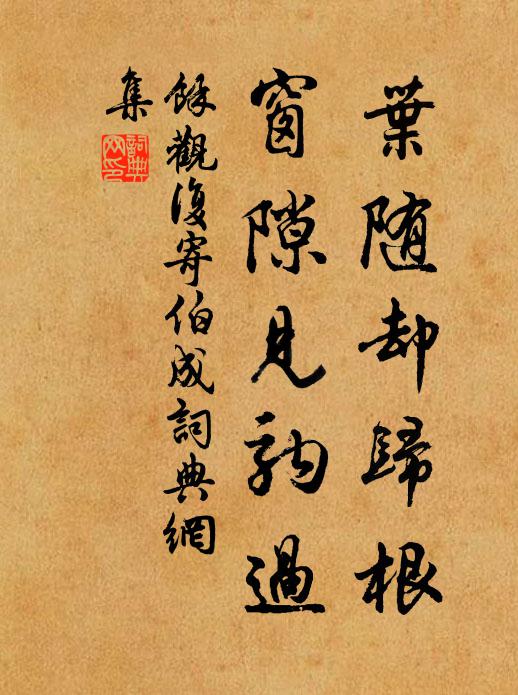 葉随却歸根
窗隙見駒過
餘觀復寄伯成詞典網
集
詞典
网印